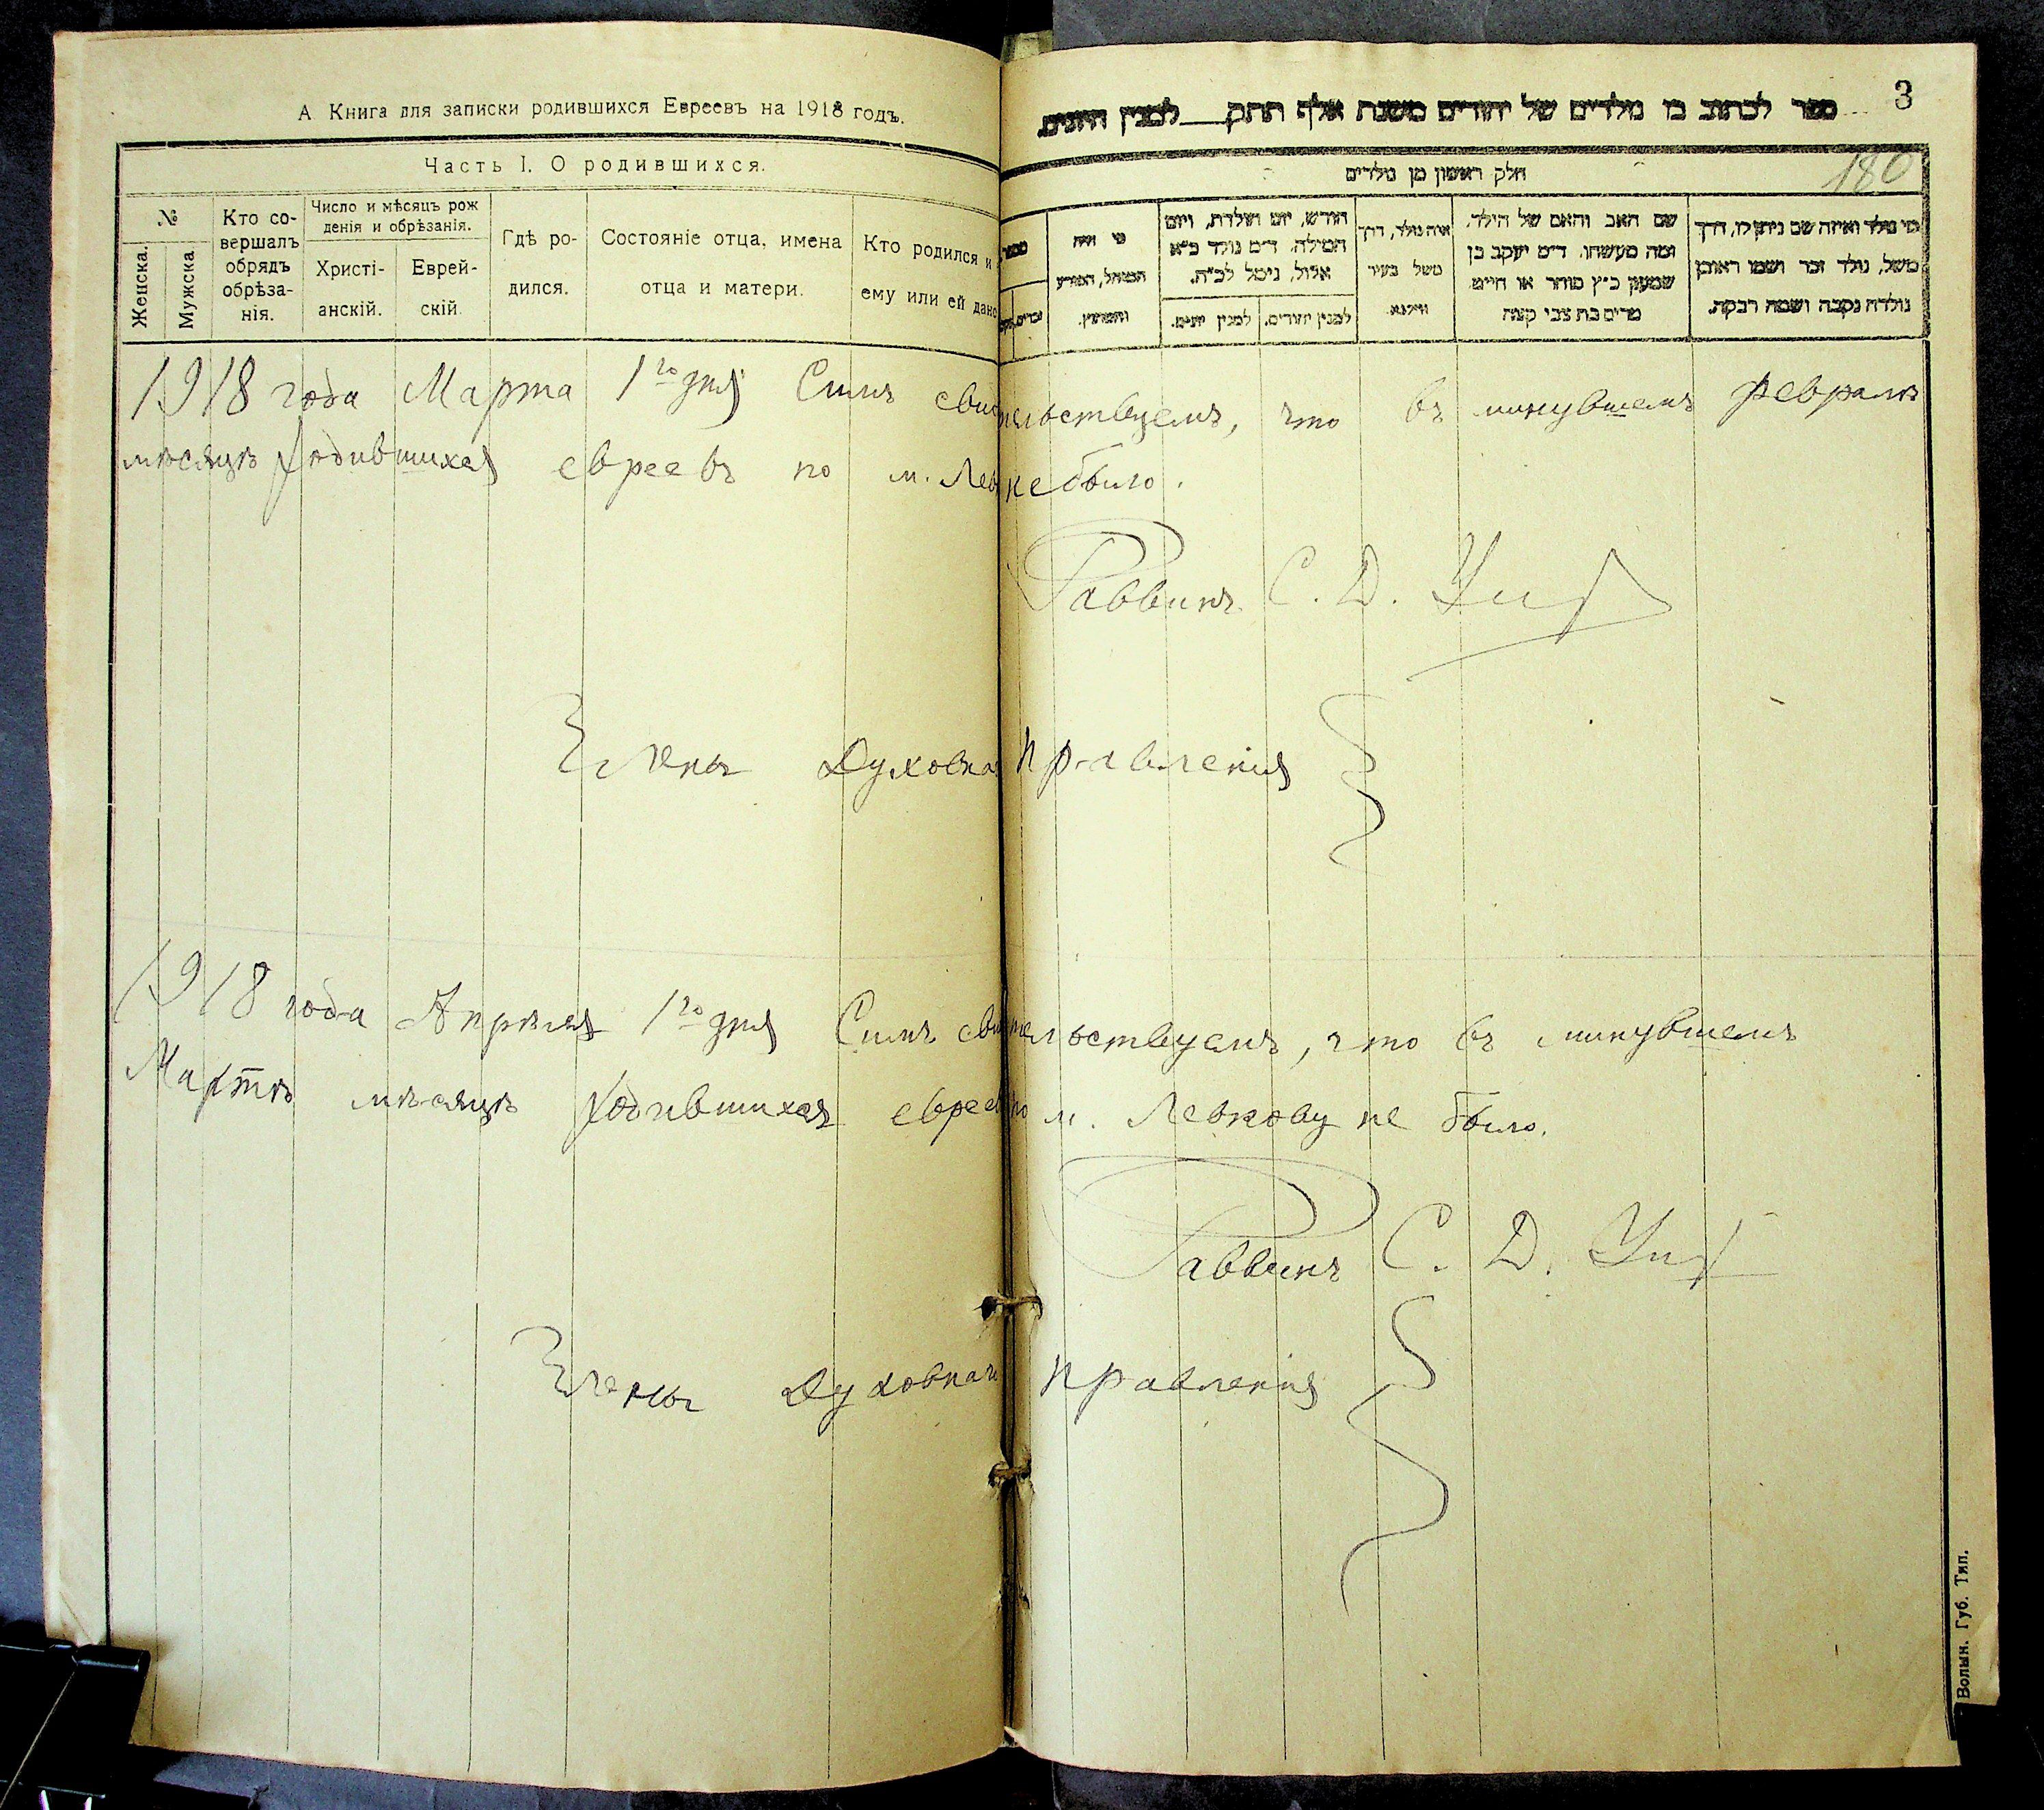 А Книга для записки родившихся Евреевъ на 1918 годъ.
Часть I. О родившихся.
№
Женска.
Мужска.
Кто со-
вершалъ
обрядъ
обрѣза-
нія.
Число и мѣсяцъ рож
денія и обрѣзанія.
Христі-
анскій.
Еврей-
скій.
Гдѣ ро-
дился.
Состояніе отца, имена
отца и матери.
Кто родился и
ему или ей дано
3
ספר לכתוב בו נולדים של יהודים משנת אלף תתק למנין היונים
180
חלק ראשון מן נולדים
מי הוא
המוהל, הפורע
והמוצץ.
חודש, יום הולדת, ויום
המילה. ד״מ נולד כ״א
אלול, נימל לכ״ח.
למנין יונים.
למנין יהודים.
איה נולד, דרך
משל בעיר
ווילנא
שם האב והאם של הילד.
ומה מעשהו. ד״מ יעקב בן
שמעון כ״ץ סוחר או חייט
מרים בת צבי קצה
מי נולד ואיזה שם ניתן לו, דרך
משל, נולד זכר ושמו ראובן
נולדה נקבה ושמה רבקה.
1918 года Марта 1го дня Симъ свидетельствуемъ, что въ минувшемъ феврале
мѣсяцѣ родившихся евреевъ по м. Лев не было.
Раввинъ С. Д.
Члены Духовна правленія
1918 года Апрѣля 1го дня Симъ свидетельствуемъ, что въ минувшемъ
Мартѣ мѣсяцѣ родившихся евреевъ по м. Левкову не было.
Раввинъ С. Д.
Члены Духовнаго правленія
Волын. Губ. Тип.